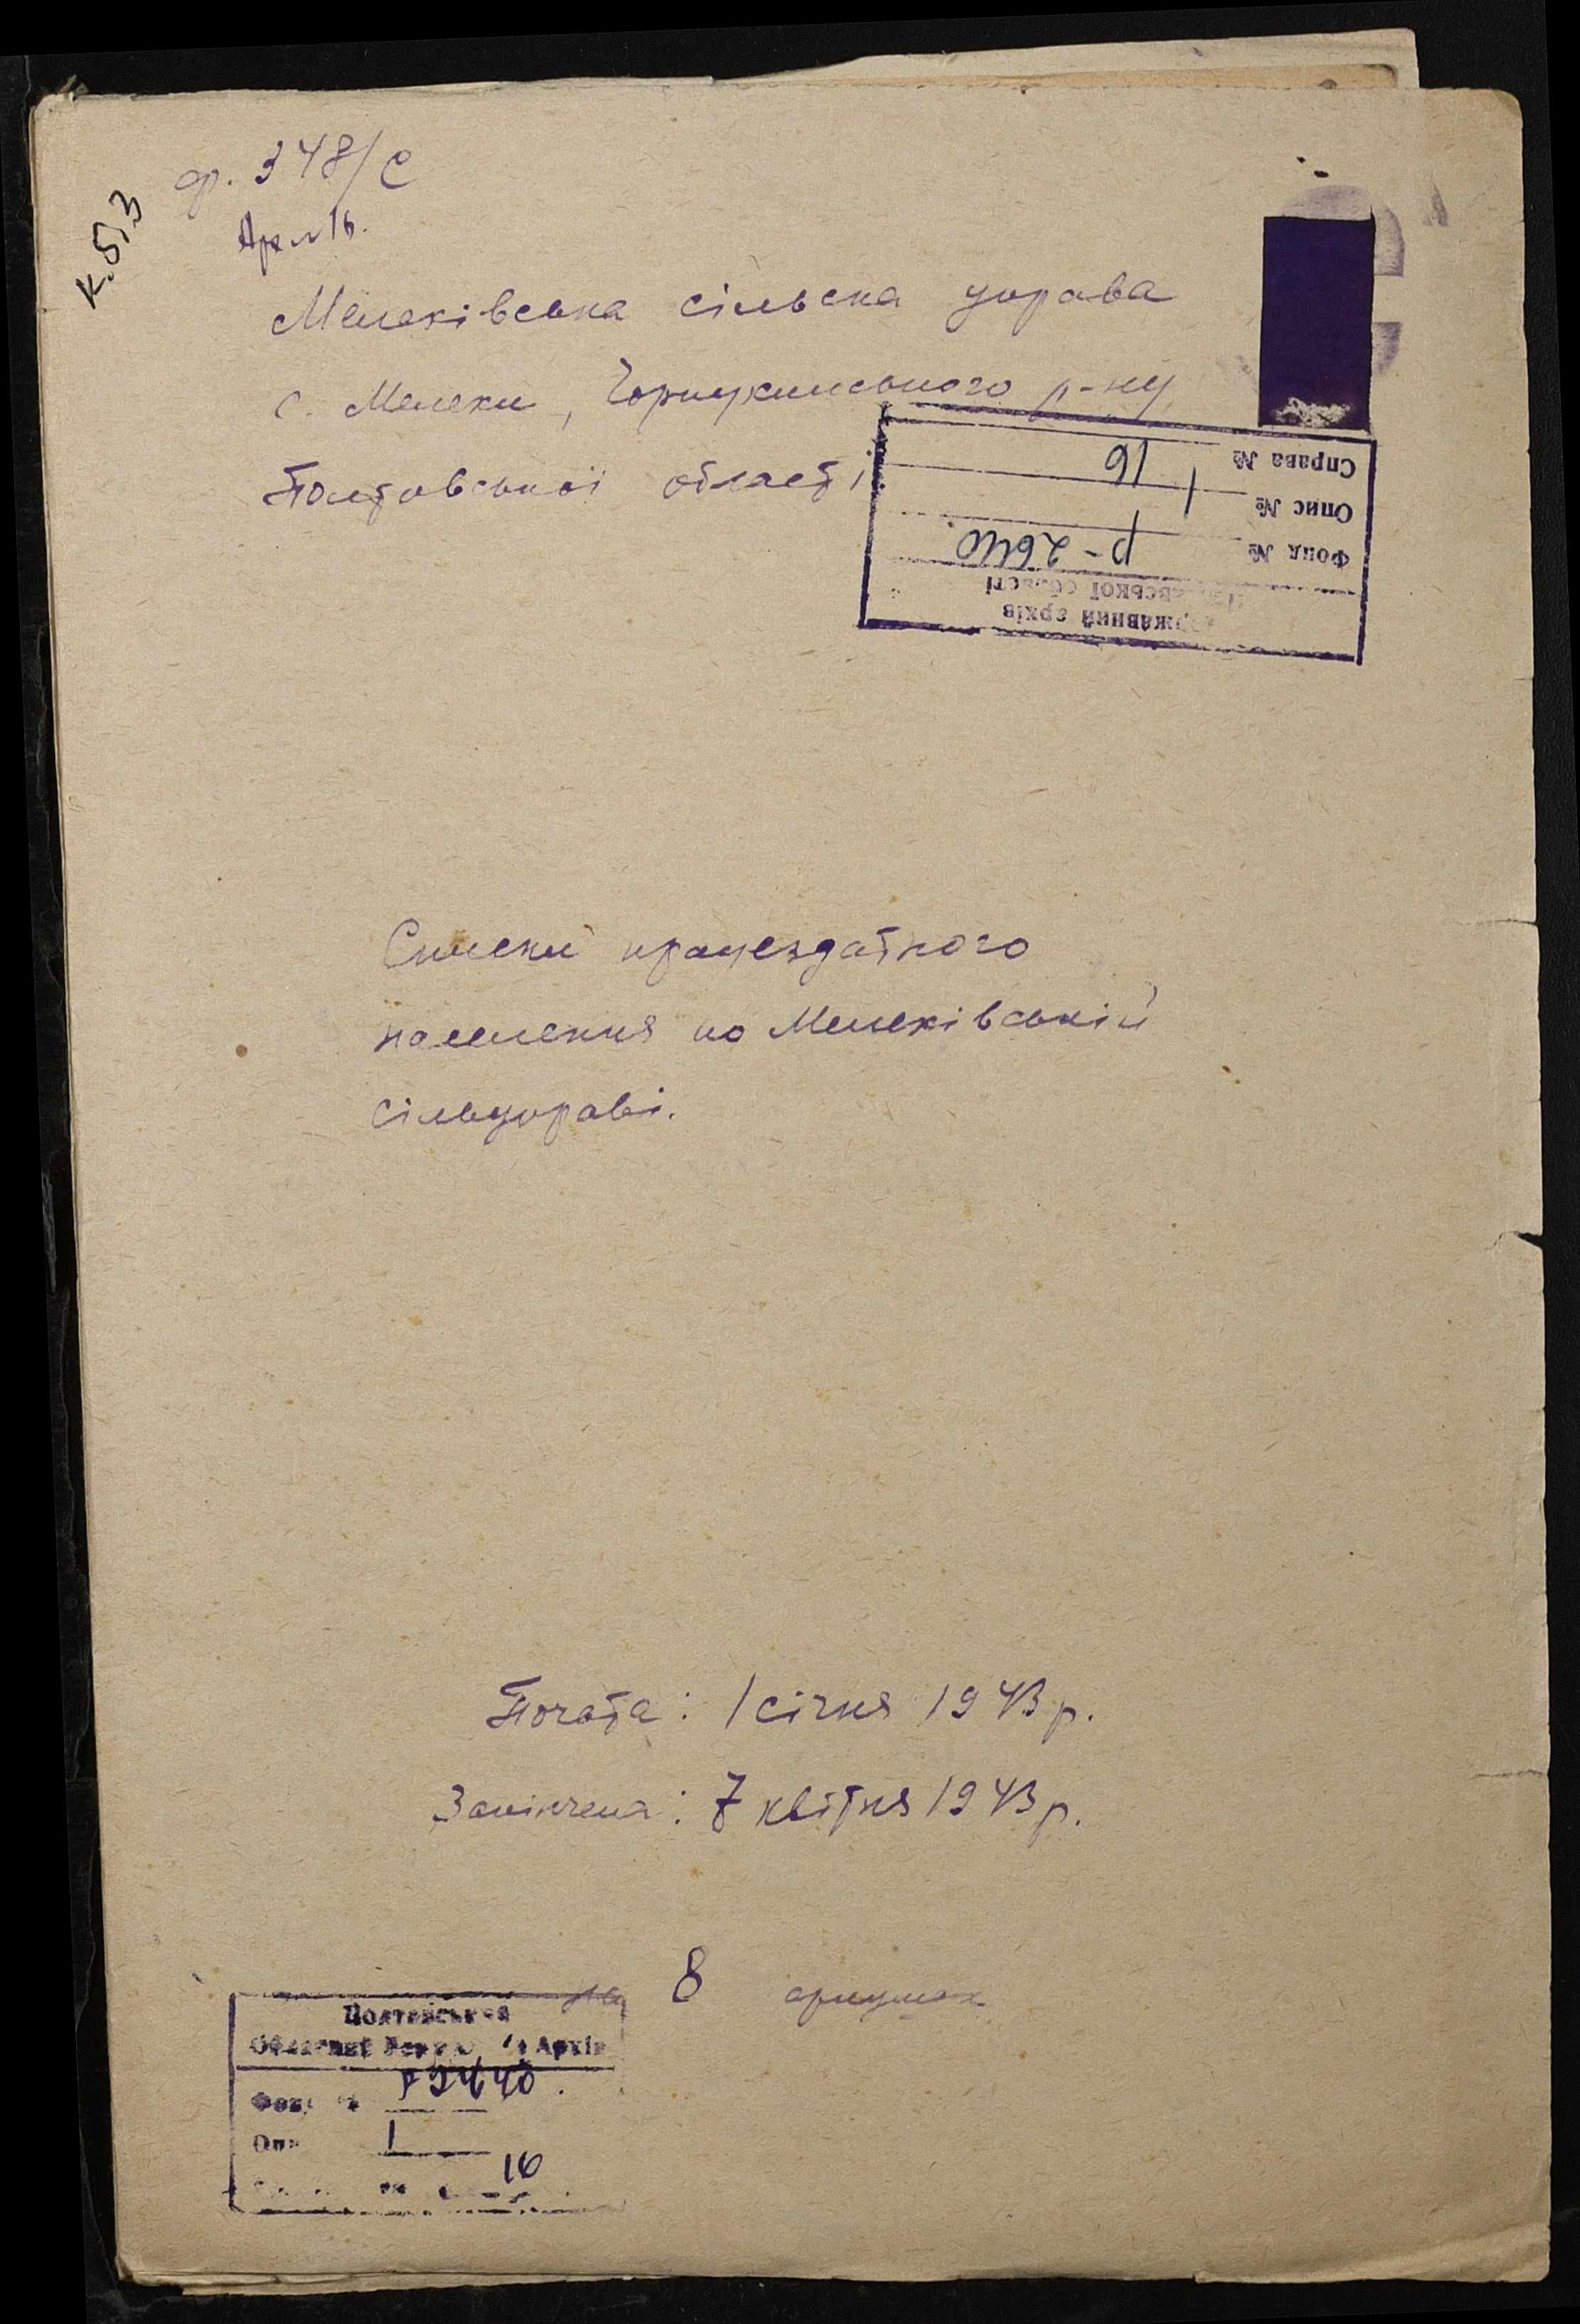 ф. 348/с
к.513
Арк №16.
Мелеківська сільска управа
с. Мелехи, Чорнухинського р-ну
Полтавської області
Справа № 16
Опис № 1
Фонд № р-2640
Державний архів
Полтавської області
Списки працездатного
населення по Мелехівській
сільуправі.
Почата: 1 січня 1943 р.
Закінчена: 7 квітня 1943 р.
на 8 аркушах
Полтавський
Обласний Держ. Архів
Фонд № р2440.
Опис 1
16